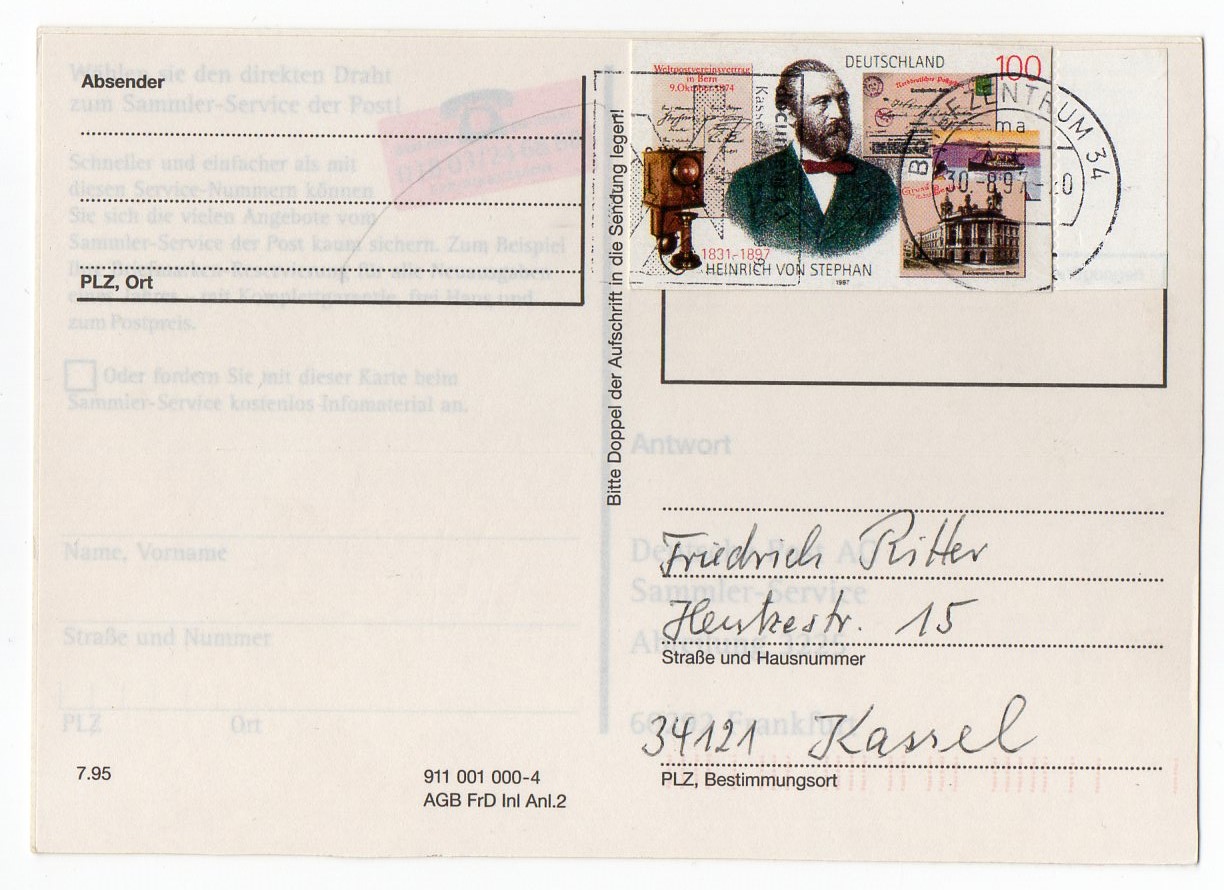 Absender
Wählen sie den direkten Draht
zum Sammler-Service der Post!
Schneller und einfacher als mit
diesen Service-Nummern können
Sie sich die vielen Angebote vom
Sammler-Service der Post kaum sichern. Zum Beispiel
zum Postpreis.
PLZ, Ort
Oder fordern Sie mit dieser Karte beim
Sammler-Service kostenlos Infomaterial an.
Name, Vorname
Straße und Nummer
PLZ Ort
7.95
911 001 000-4
AGB FrD Inl Anl.2
Bitte Doppel der Aufschrift in die Sendung legen!
Weltpostvereinsvertrag
in Bern
9.Oktober 1874
DEUTSCHLAND
100
1831-1897
HEINRICH VON STEPHAN
1997
Kassel
BRIEFZENTRUM 34
ma
30.-8.97-20
Antwort
Deutsche Post AG
Sammler-Service
Friedrich Ritter
15
Straße und Hausnummer
34121 Kassel
Frankfurt
PLZ, Bestimmungsort